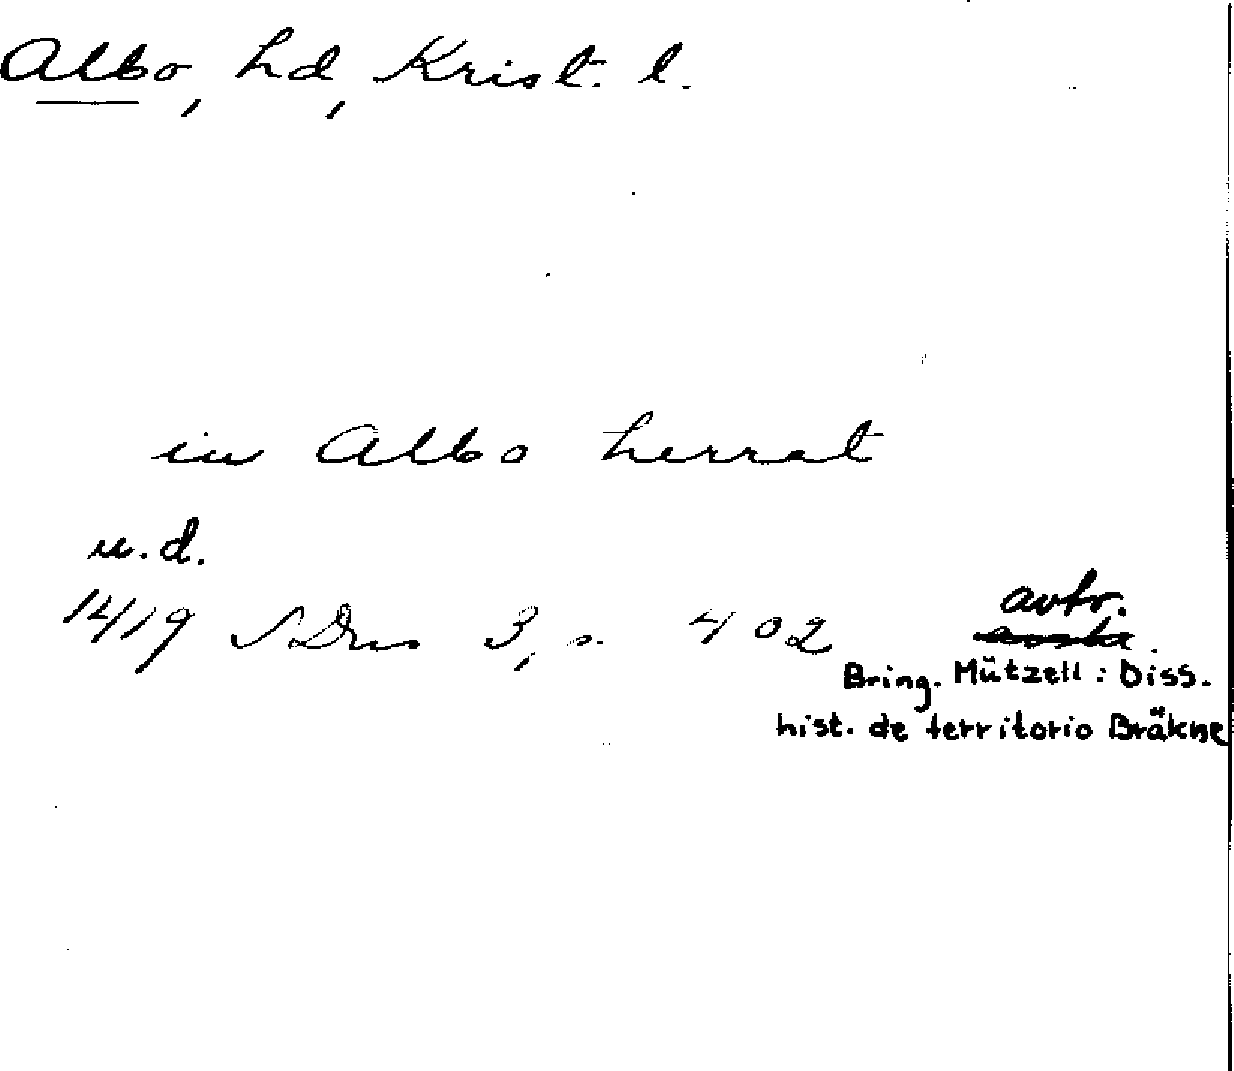 Albo, hd, Krist. l.
in Albo herrat
u.d.
avtr.
1419 SDns 3, s. 402
Bring. Mützell : Diss.
hist. de territorio Bräkne